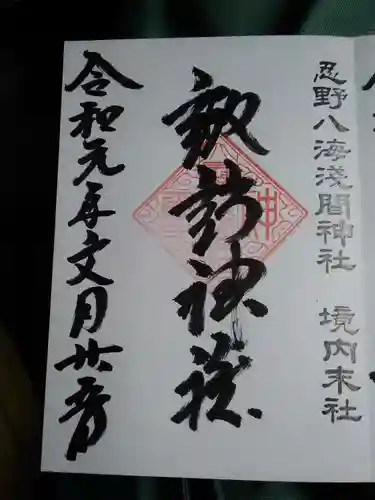 忍野八海淺間神社 境内末社
諏訪神社
令和元年文月廿六日